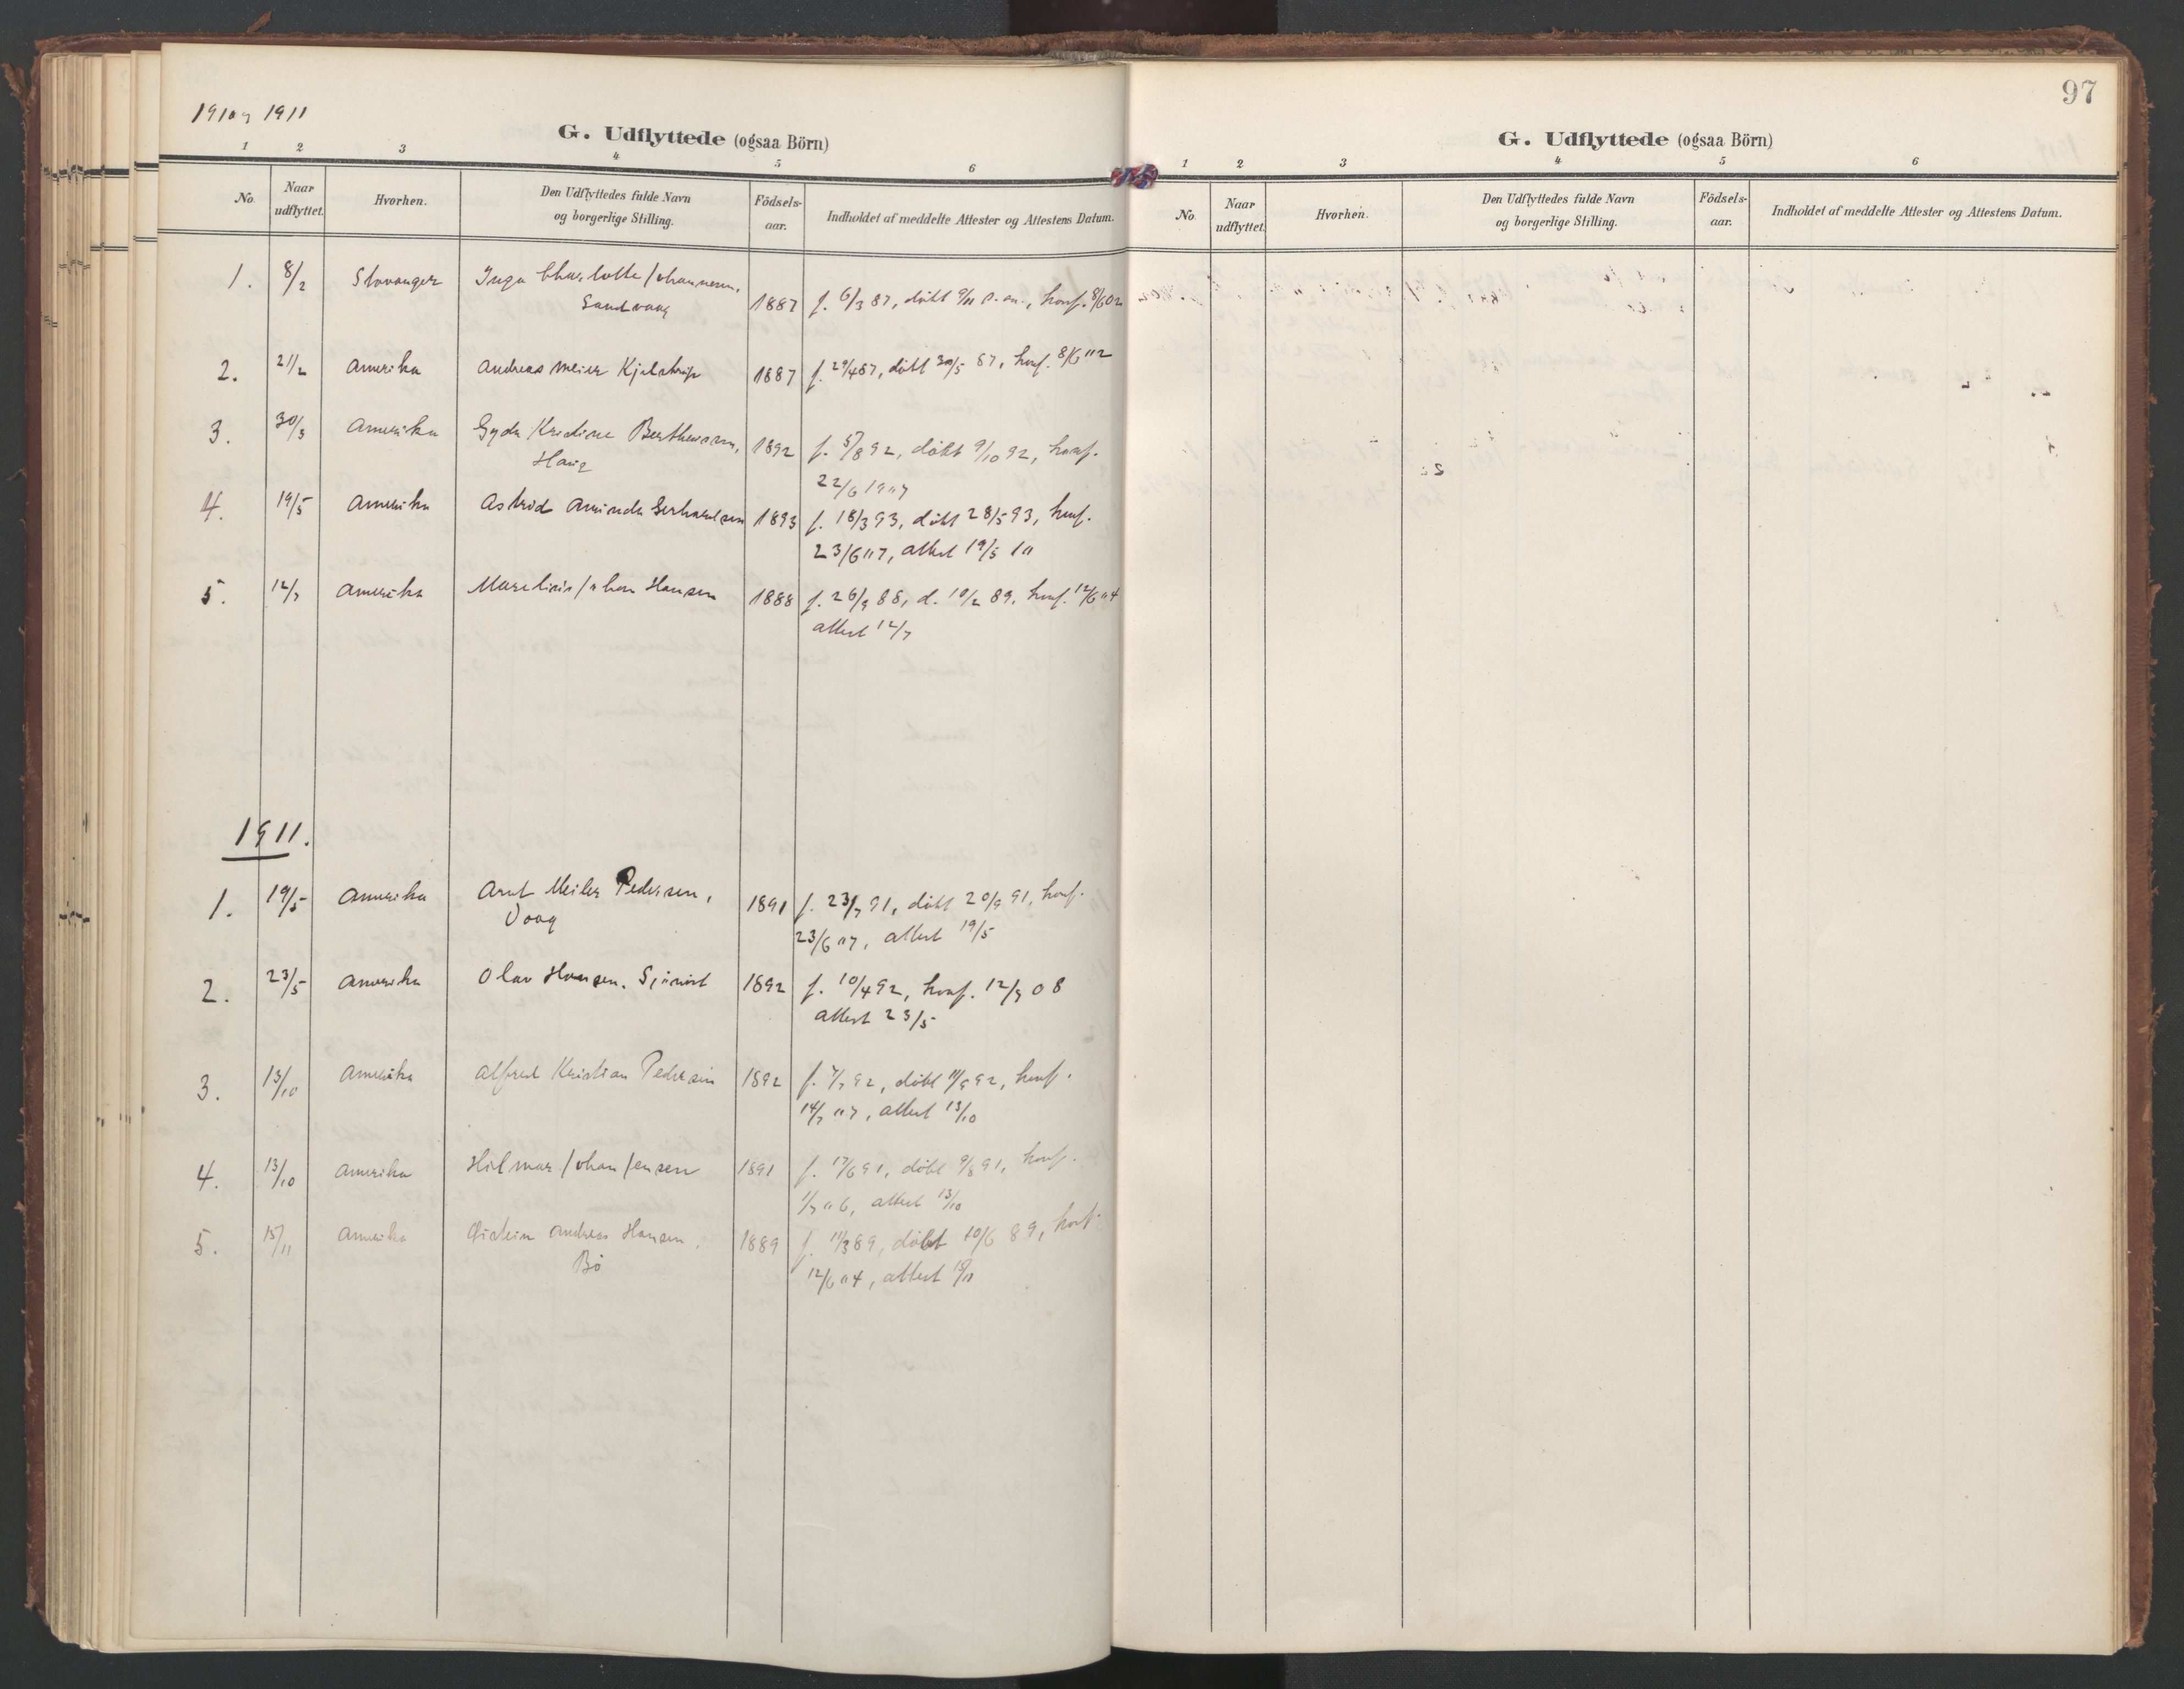 1910 og 1911
G. Udflyttede (ogsaa Börn)
1 2 3 4 5 6
No. Naar udflyttet. Hvorhen. Den Udflyttedes fulde Navn og borgerlige Stilling. Födsels-aar. Indholdet af meddelte Attester og Attestens Datum.
1. 8/2 Stavanger Inga Charlotte Johannesen, 1887 f. 6/3 87, døbt 9/11 s. a., konf. 8/6 02
Sandvaag
2. 21/2 Amerika Andreas Meier Kjelstrup 1887 f. 29/4 87, døbt 30/5 87, konf. 8/6 02
3. 30/3 Amerika Gyda Kristine Bertheussen, 1892 f. 5/8 92, døbt 9/10 92, konf.
Haug 22/6 1907
4. 19/5 Amerika Astrid Aminda Gerhardsen 1893 f. 18/3 93, døbt 28/5 93, konf.
23/6 07, attest 19/5 10
5. 12/7 Amerika Marelius Johan Hansen 1888 f. 26/9 88, d. 10/2 89, konf. 12/6 04
attest 12/7
1911.
1. 19/5 Amerika Arnt Meiler Pedersen, 1891 f. 23/7 91, døbt 20/9 91, konf.
Vaag 23/6 07, attest 19/5
2. 23/5 Amerika Olav Hansen. 1892 f. 10/4 92, konf. 12/7 08
attest 23/5
3. 13/10 Amerika Alfred Kristian Pedersen 1892 f. 7/7 92, døbt 11/9 92, konf.
14/7 07, attest 13/10
4. 13/10 Amerika Hilmar Johan Jensen 1891 f. 17/6 91, døbt 9/8 91, konf.
1/7 06, attest 13/10
5. 15/11 Amerika Øistein Andreas Hansen, 1889 f. 11/3 89, døbt 10/6 89, konf.
Bø 12/6 04, attest 15/11
97
G. Udflyttede (ogsaa Börn)
1 2 3 4 5 6
No. Naar udflyttet. Hvorhen. Den Udflyttedes fulde Navn og borgerlige Stilling. Födsels-aar. Indholdet af meddelte Attester og Attestens Datum.